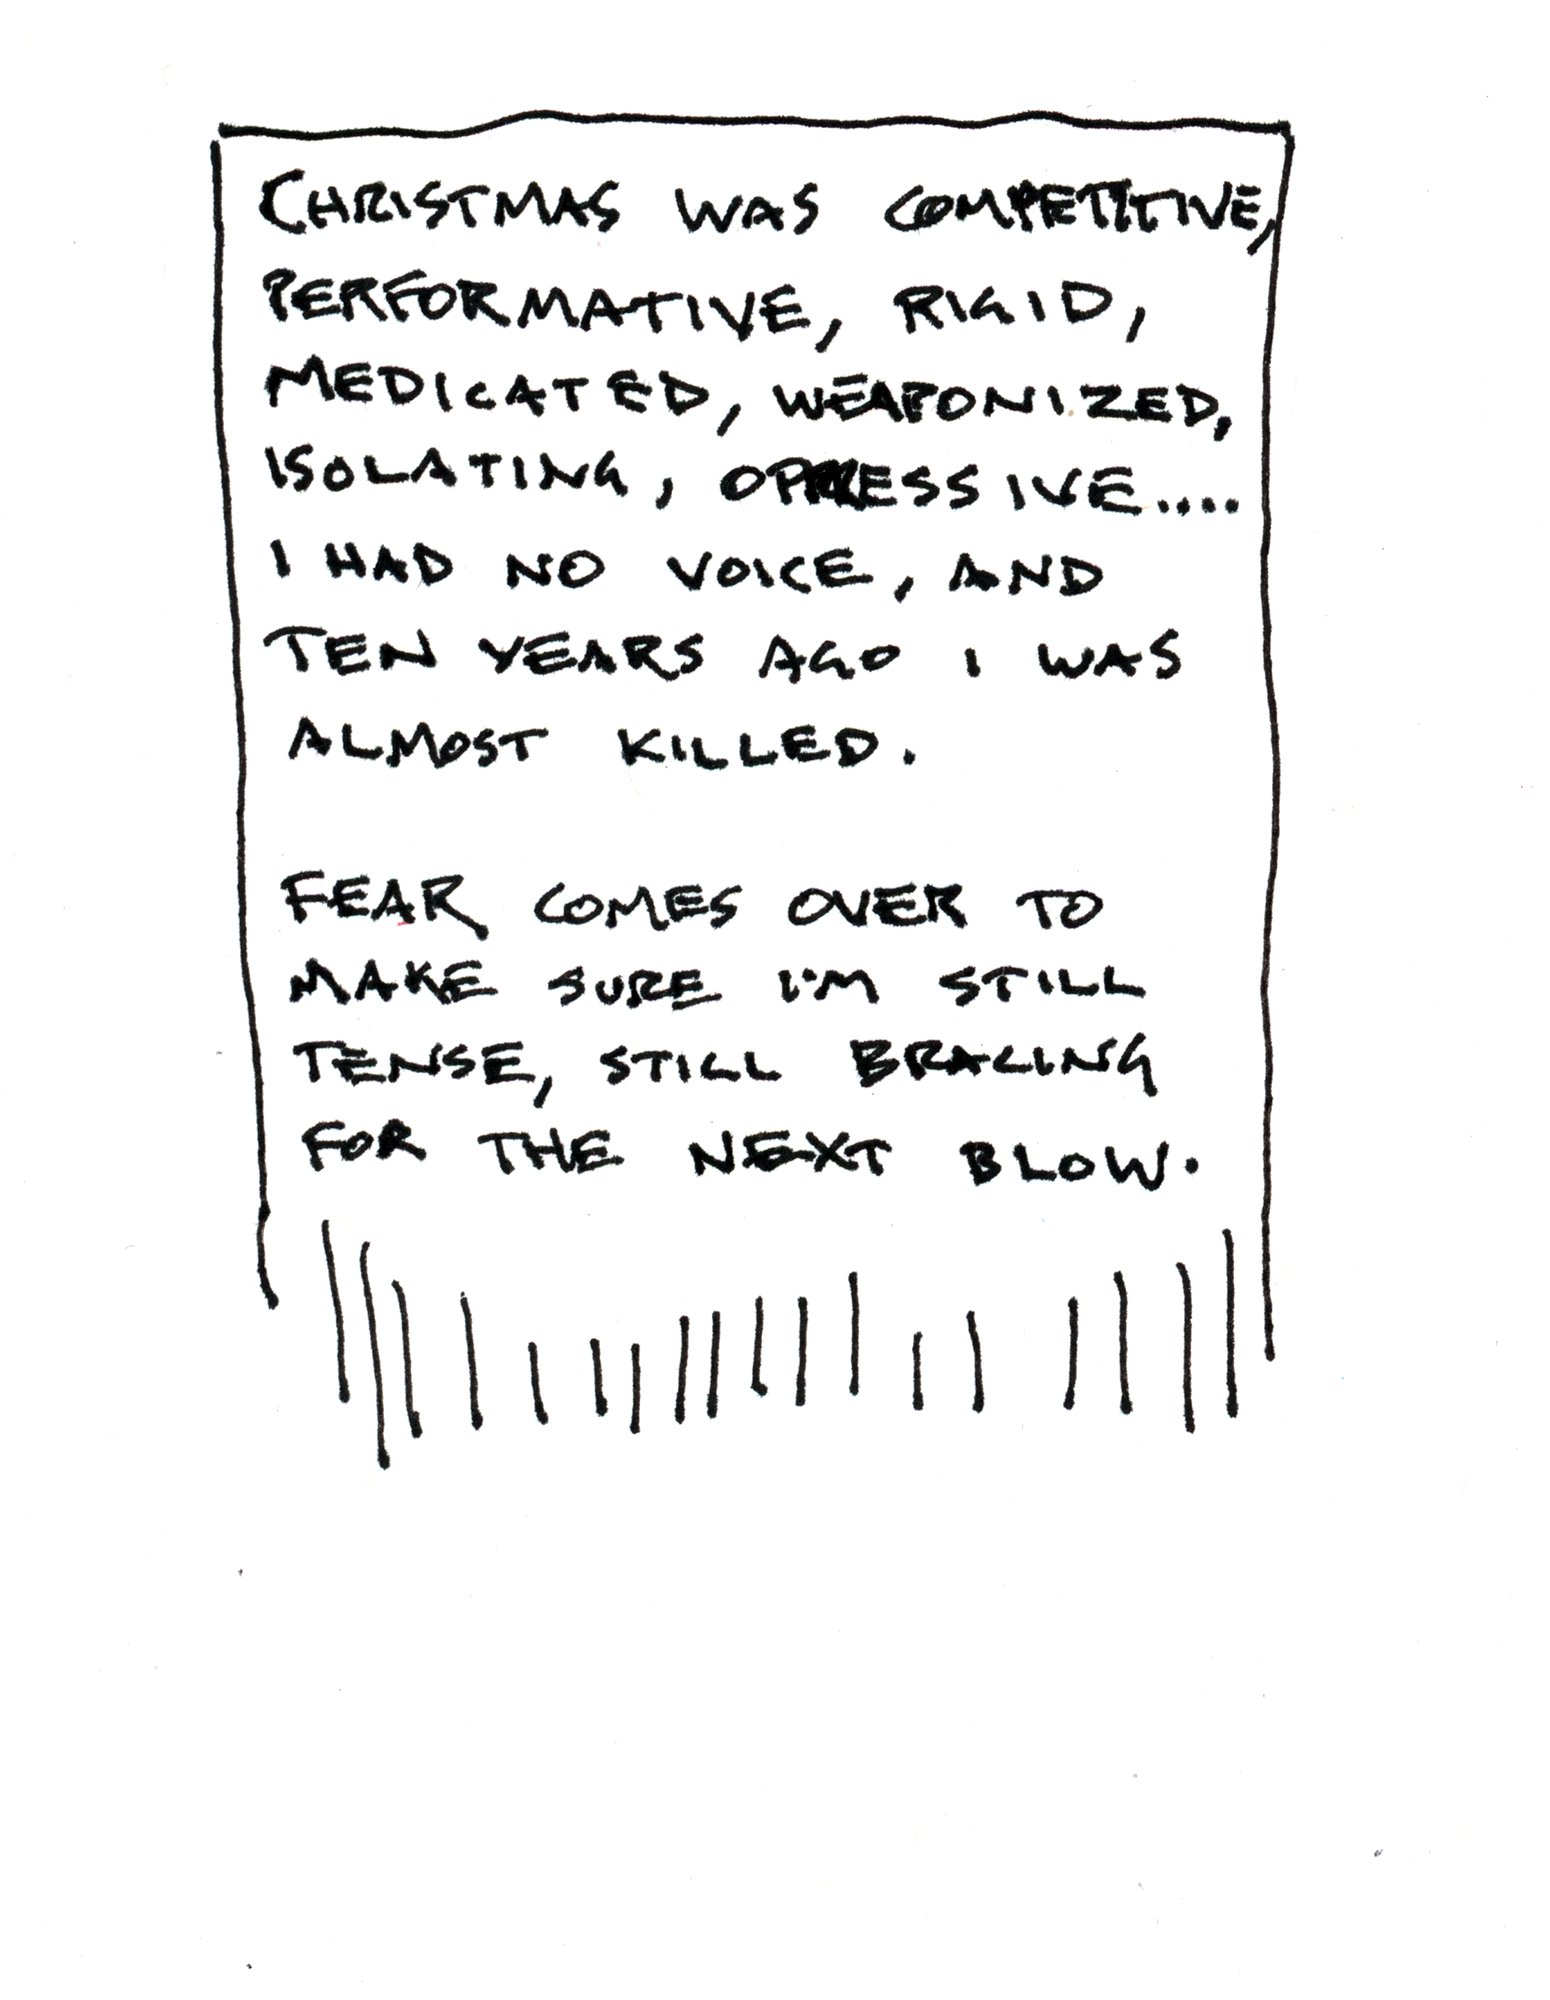 CHRISTMAS WAS COMPETITIVE,
PERFORMATIVE, RIGID,
MEDICATED, WEAPONIZED,
ISOLATING, OPRESSIVE....
I HAD NO VOICE, AND
TEN YEARS AGO I WAS
ALMOST KILLED.
FEAR COMES OVER TO
MAKE SURE I'M STILL
TENSE, STILL BRACING
FOR THE NEXT BLOW.